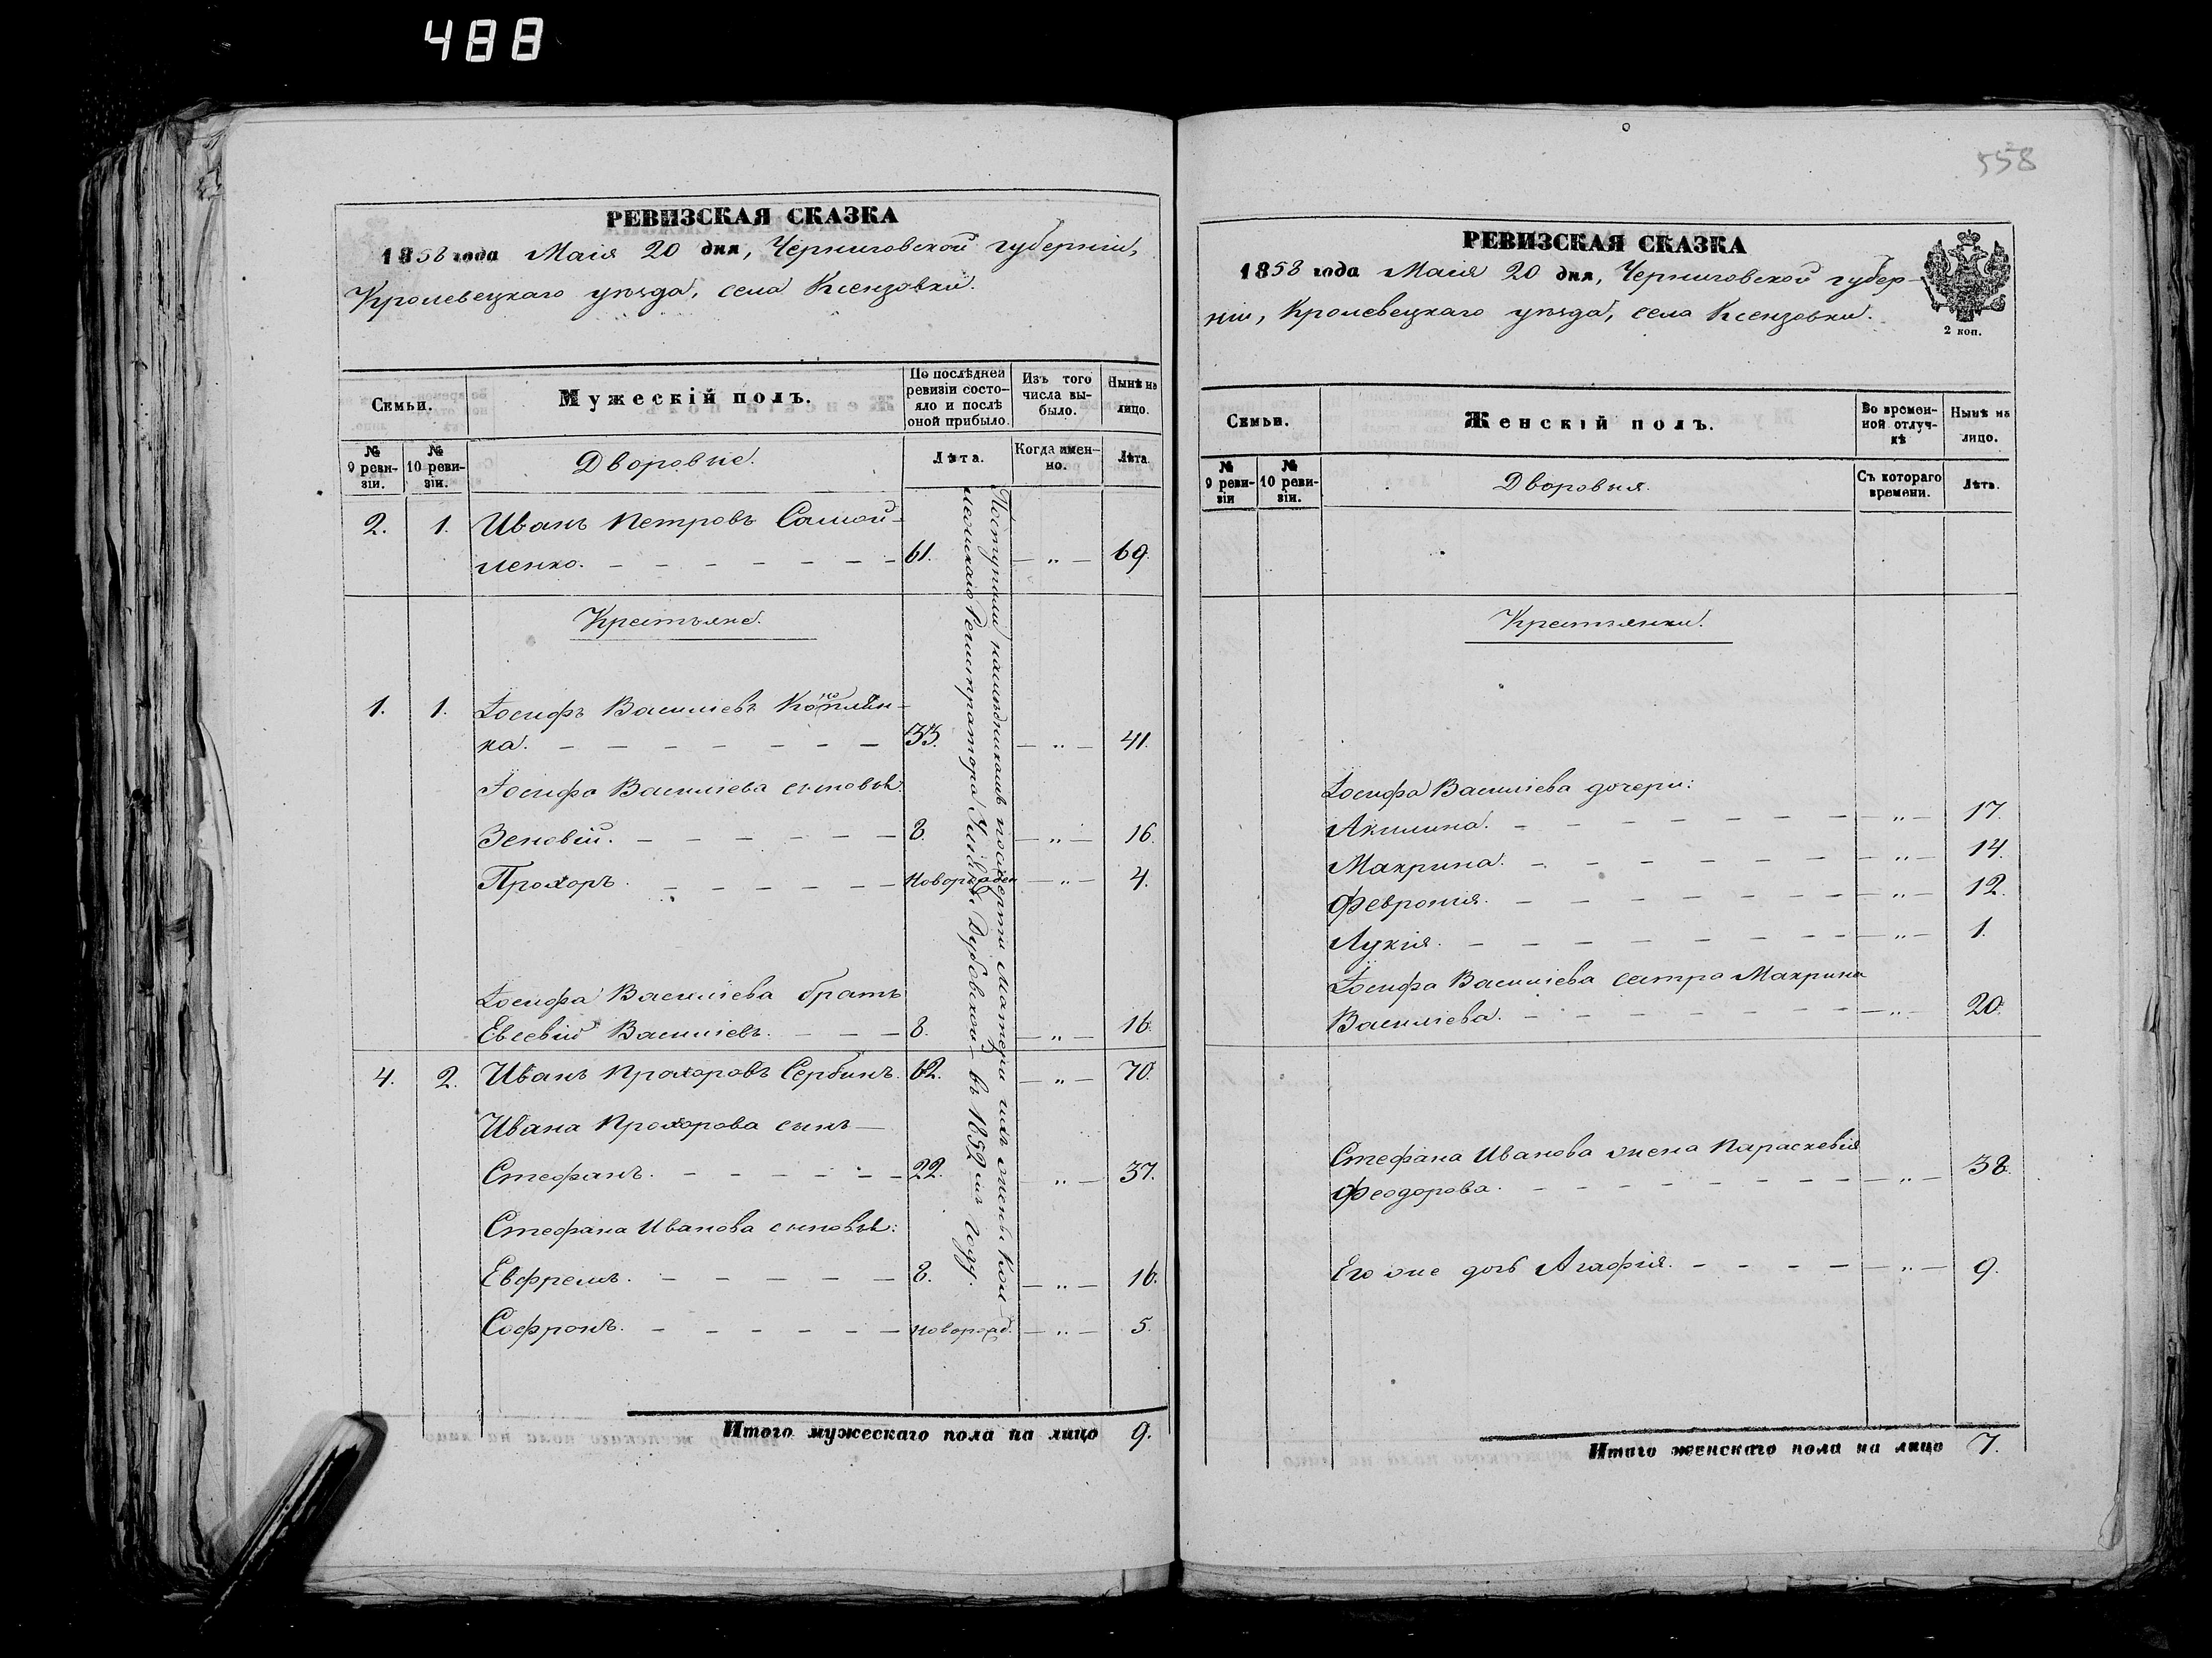 488
558
РЕВИЗСКАЯ СКАЗКА
1858 года Маія 20 дня, Черниговской губерніи,
Кролевецкаго уѣзда, села Ксензовки.
Семьи.
Мужескій полъ.
По послѣдней ревизіи состояло и послѣ оной прибыло.
Изъ того числа выбыло.
Нынѣ на лицо.
№ 9 ревизіи.
№ 10 ревизіи.
Дворовые.
Лѣта.
Когда именно.
Лѣта
2. 1. Иванъ Петровъ Самой-
ленко. 61. — „ — 69.
Крестьяне.
1. 1. Іосифъ Васильевъ
ка. 33. — „ — 41.
Іосифа Васильева сыновья:
Зеновій. 8. — „ — 16.
Прохоръ. новорожден — „ — 4.
Іосифа Васильева братъ
Евсевій Васильевъ. 8. — „ — 16.
4. 2. Иванъ Прохоровъ Сербинъ. 62. — „ — 70.
Ивана Прохорова сынъ —
Стефанъ. 22. — „ — 37.
Стефана Иванова сыновья:
Евфремъ. 8. — „ — 16.
Софронъ. новорожд. — „ — 5.
Поступили наслѣдникамъ по смерти матери ихъ жены Кол-
лежскаго Регистратора Дубовской — въ 1852мъ году.
Итого мужескаго пола на лицо 9.
РЕВИЗСКАЯ СКАЗКА
1858 года Маія 20 дня, Черниговской губер-
ніи, Кролевецкаго уѣзда, села Ксензовки.
2 коп.
Семьи.
Женскій полъ.
Во временной отлучкѣ
Нынѣ на лицо.
№ 9 ревизіи
№ 10 ревизіи.
Дворовыя.
Съ котораго времени.
Лѣта.
Крестьянки.
Іосифа Васильева дочери:
Акилина. — „ — 17.
Макрина. — „ — 14.
Февронія. — „ — 12.
Лукія. — „ — 1.
Іосифа Васильева сестра Макрина
Васильева. — „ — 20.
Стефана Иванова жена Параскевія
Феодорова. — „ — 38.
Его же дочь Агафія. — „ — 9.
Итого женскаго пола на лицо 7.